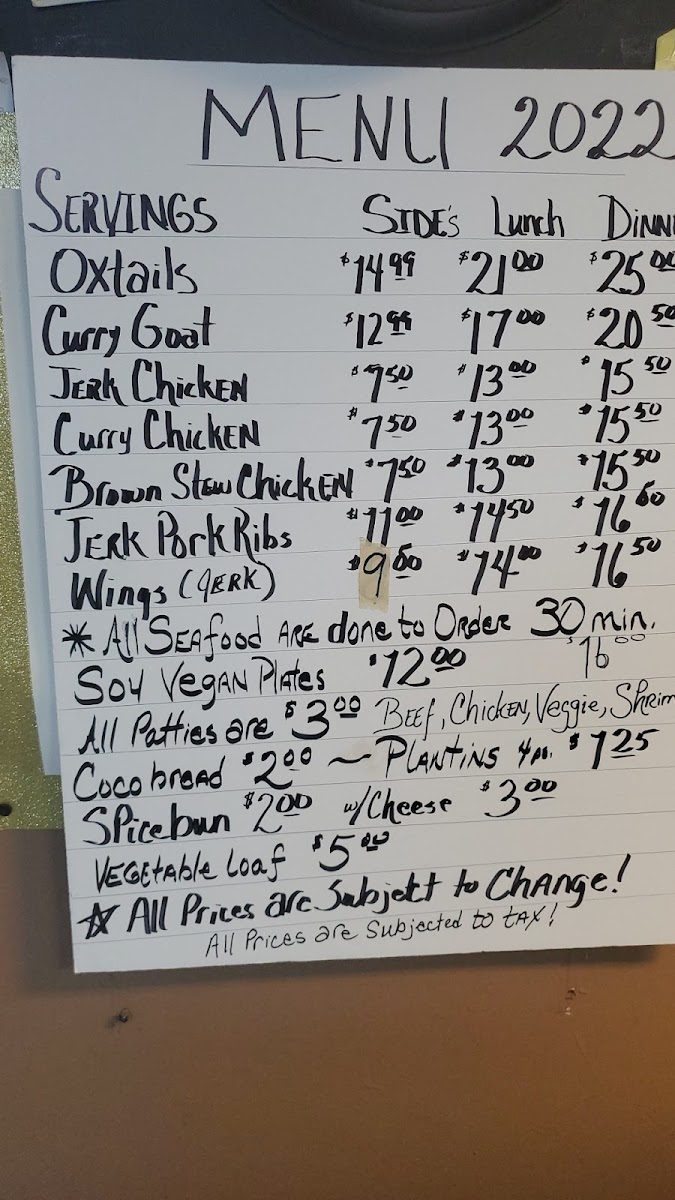 MENU 2022
SERVINGS SIDE'S Lunch DINN
Oxtails $14.99 $21.00 $25.00
Curry Goat $12.99 $17.00 $20.50
JERK CHICKEN $7.50 $13.00 $15.50
Curry CHICKEN $7.50 $13.00 $15.50
Brown Stew CHICKEN $7.50 $13.00 $15.50
JERK PORK RIBS $11.00 $14.50 $16.60
Wings (JERK) $9.00 $14.00 $16.50
* All SEAfood ARE done to ORDER 30 min.
SOY VEGAN PlATES $12.00 $16.00
All Patties are $3.00 BEEF, CHICKEN, Veggie, Shrim
Coco bread $2.00 ~ PLANTINS $1.25
Spicebun $2.00 w/Cheese $3.00
VEGETAble loaf $5.00
☆ All Prices are Subjekt to CHANGE!
All Prices are Subjected to TAX!